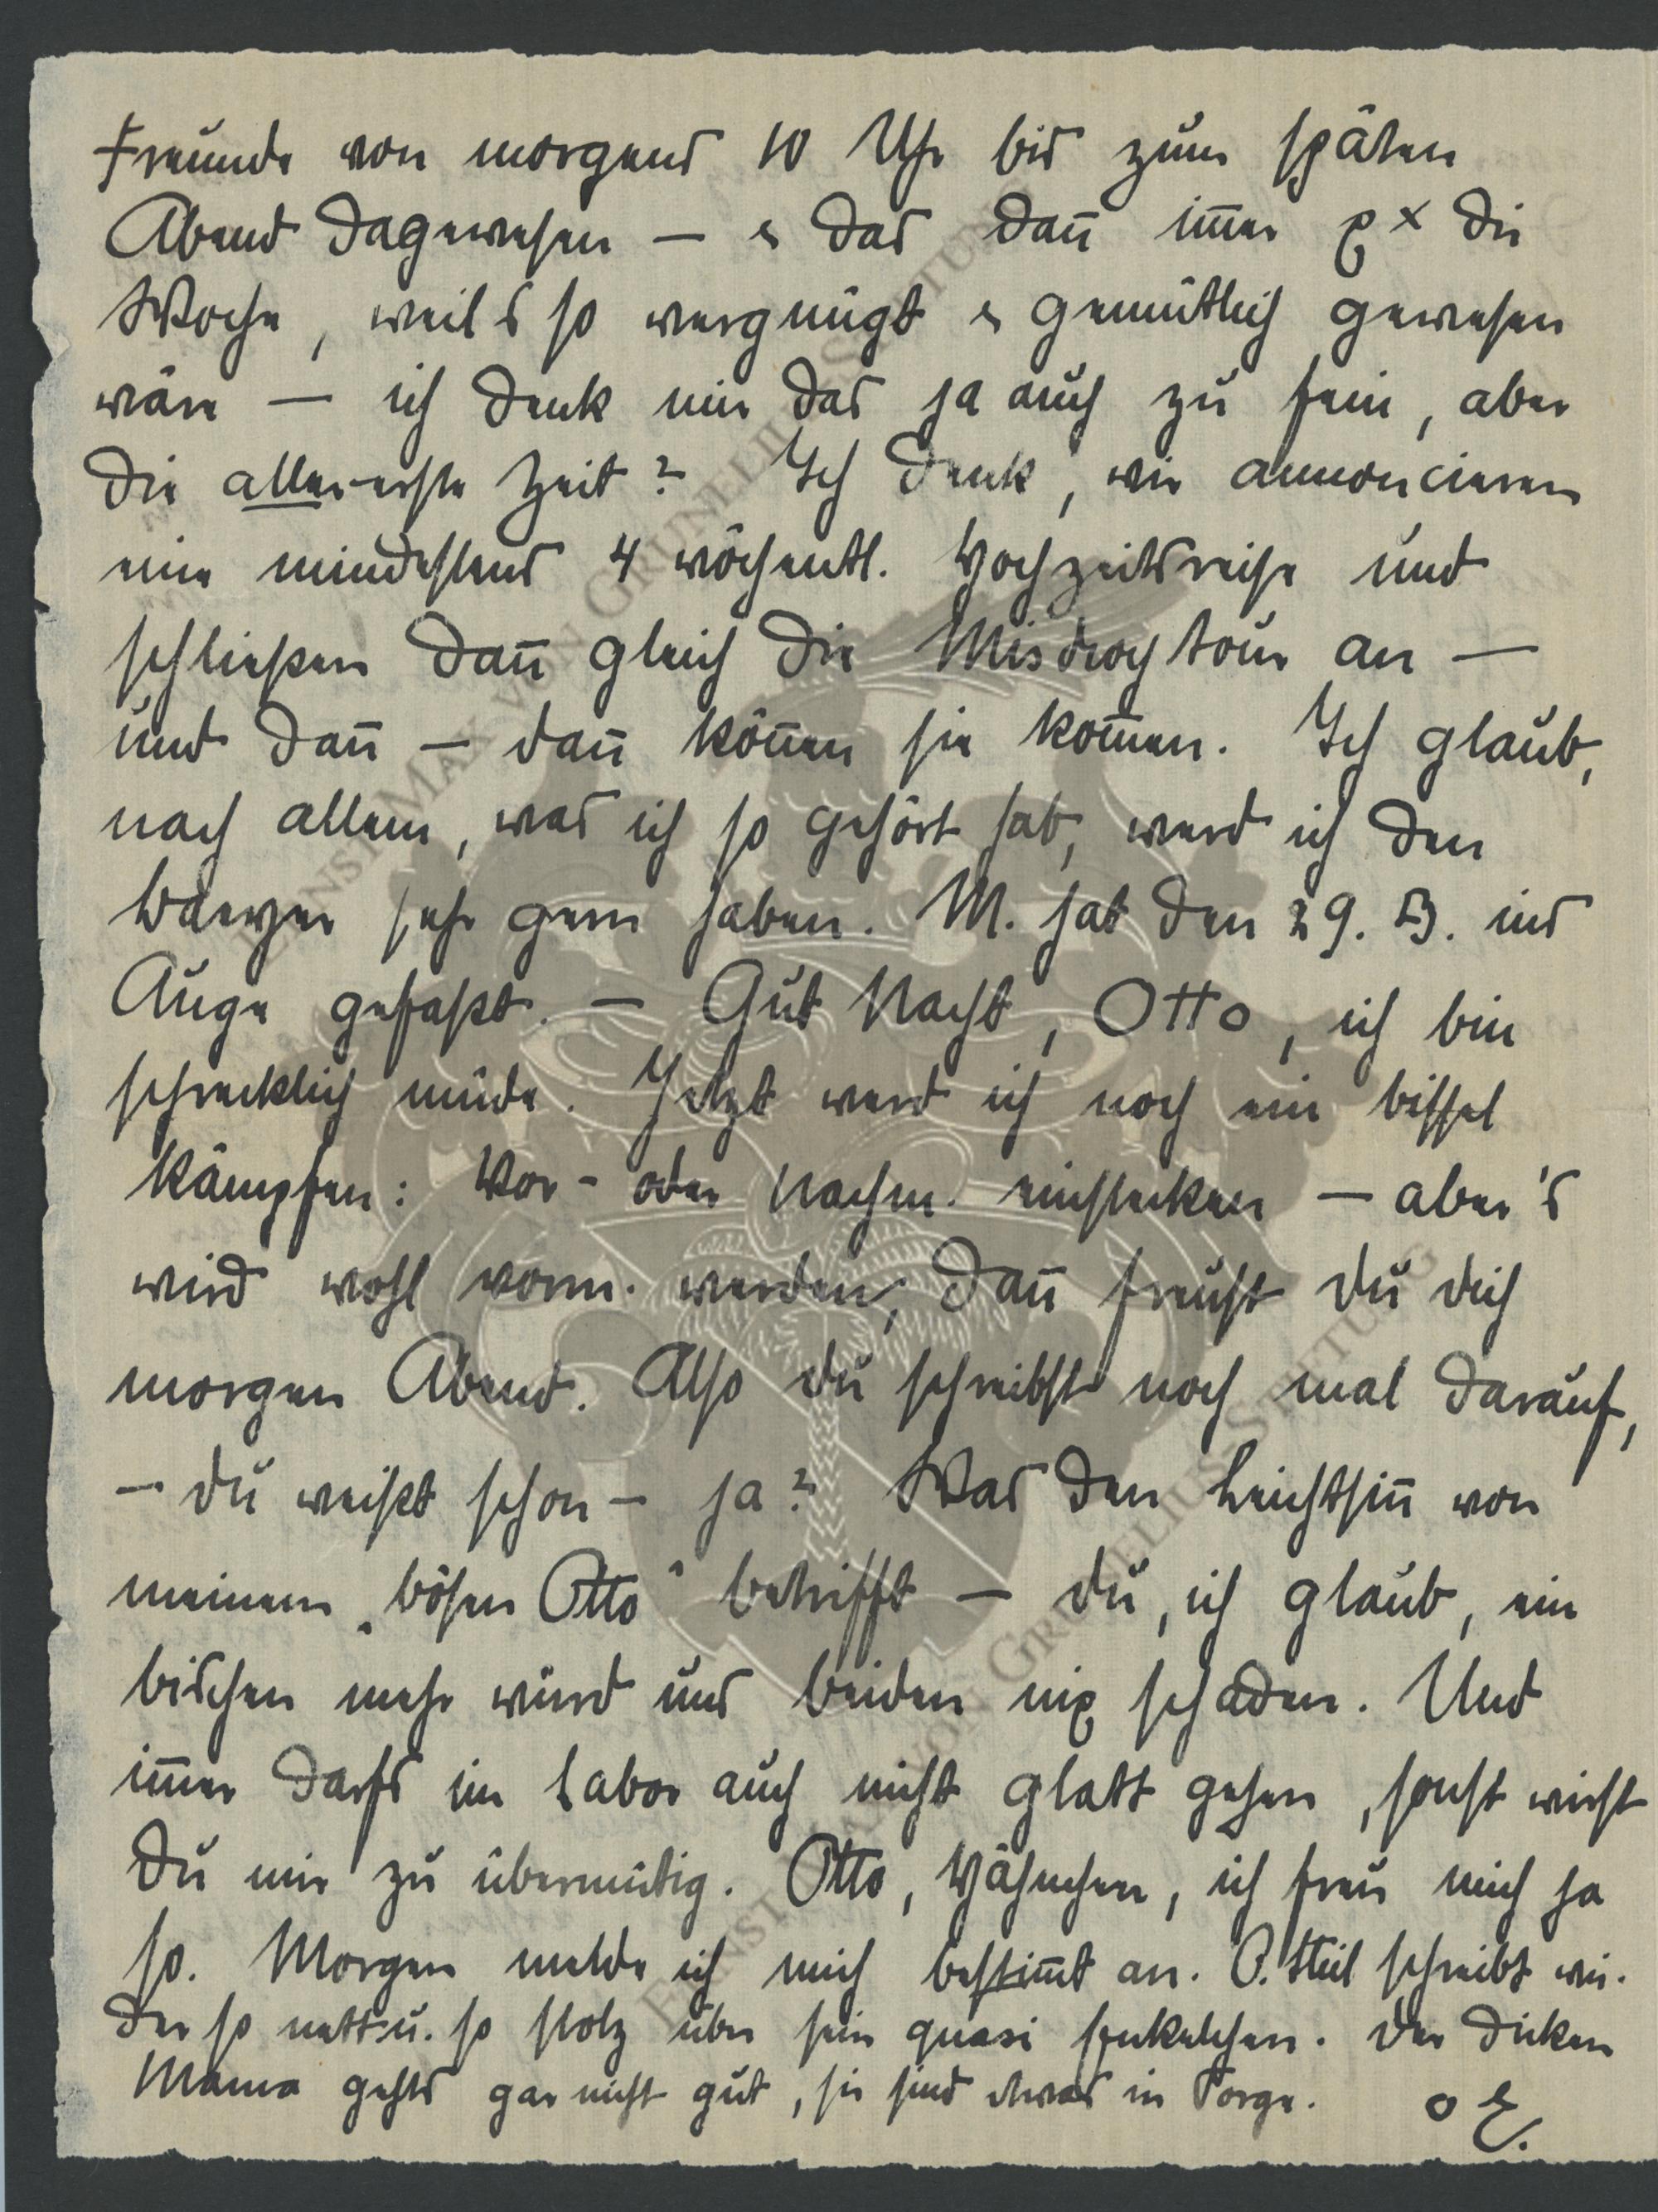 Freunde von morgens 10 Uhr bis zum späten
Abend dagewesen — & das dan̄ im̄er x die
Woche, weil's so vergnügt & gemütlich gewesen
wäre — ich denk mir das ja auch zu fein, aber
die allererste Zeit? Ich denk, wir annoncieren
eine mindestens 4 wöchentl. Hochzeitsreise und
schließen dan̄ gleich die Misdroytour an —
und dan̄ — dan̄ kön̄en sie kom̄en. Ich glaub,
nach allem, was ich so gehört hab, werd ich den
sehr gern haben. M. hat den 29. ins
Auge gefaßt. — Gut Nacht, Otto, ich bin
schrecklich müde. Jetzt werd ich noch ein bissel
kämpfen: Vor- oder Nachm. einstecken — aber 's
wird wohl vorm. werden, dan̄ freust du dich
morgen Abend. Also du schreibst noch mal darauf,
— du weißt schon — ja? Was den Leichtsin̄ von
meinem „bösen Otto" betrifft — du, ich glaub, ein
bischen mehr würd uns beiden nix schaden. Und
im̄er darfs im Labor auch nicht glatt gehen, sonst wirst
Du mir zu übermütig. Otto, Hähnchen, ich freu mich ja
so. Morgen melde ich mich bestim̄t an. O. Heil schreibt wie-
der so nett u. so stolz über sein quasi Enkelchen. Der dicken
Mama gehts gar nicht gut, sie sind etwas in Sorge. o E.
ERNST MAX VON GRUNELIUS STIFTUNG
ERNST MAX VON GRUNELIUS STIFTUNG